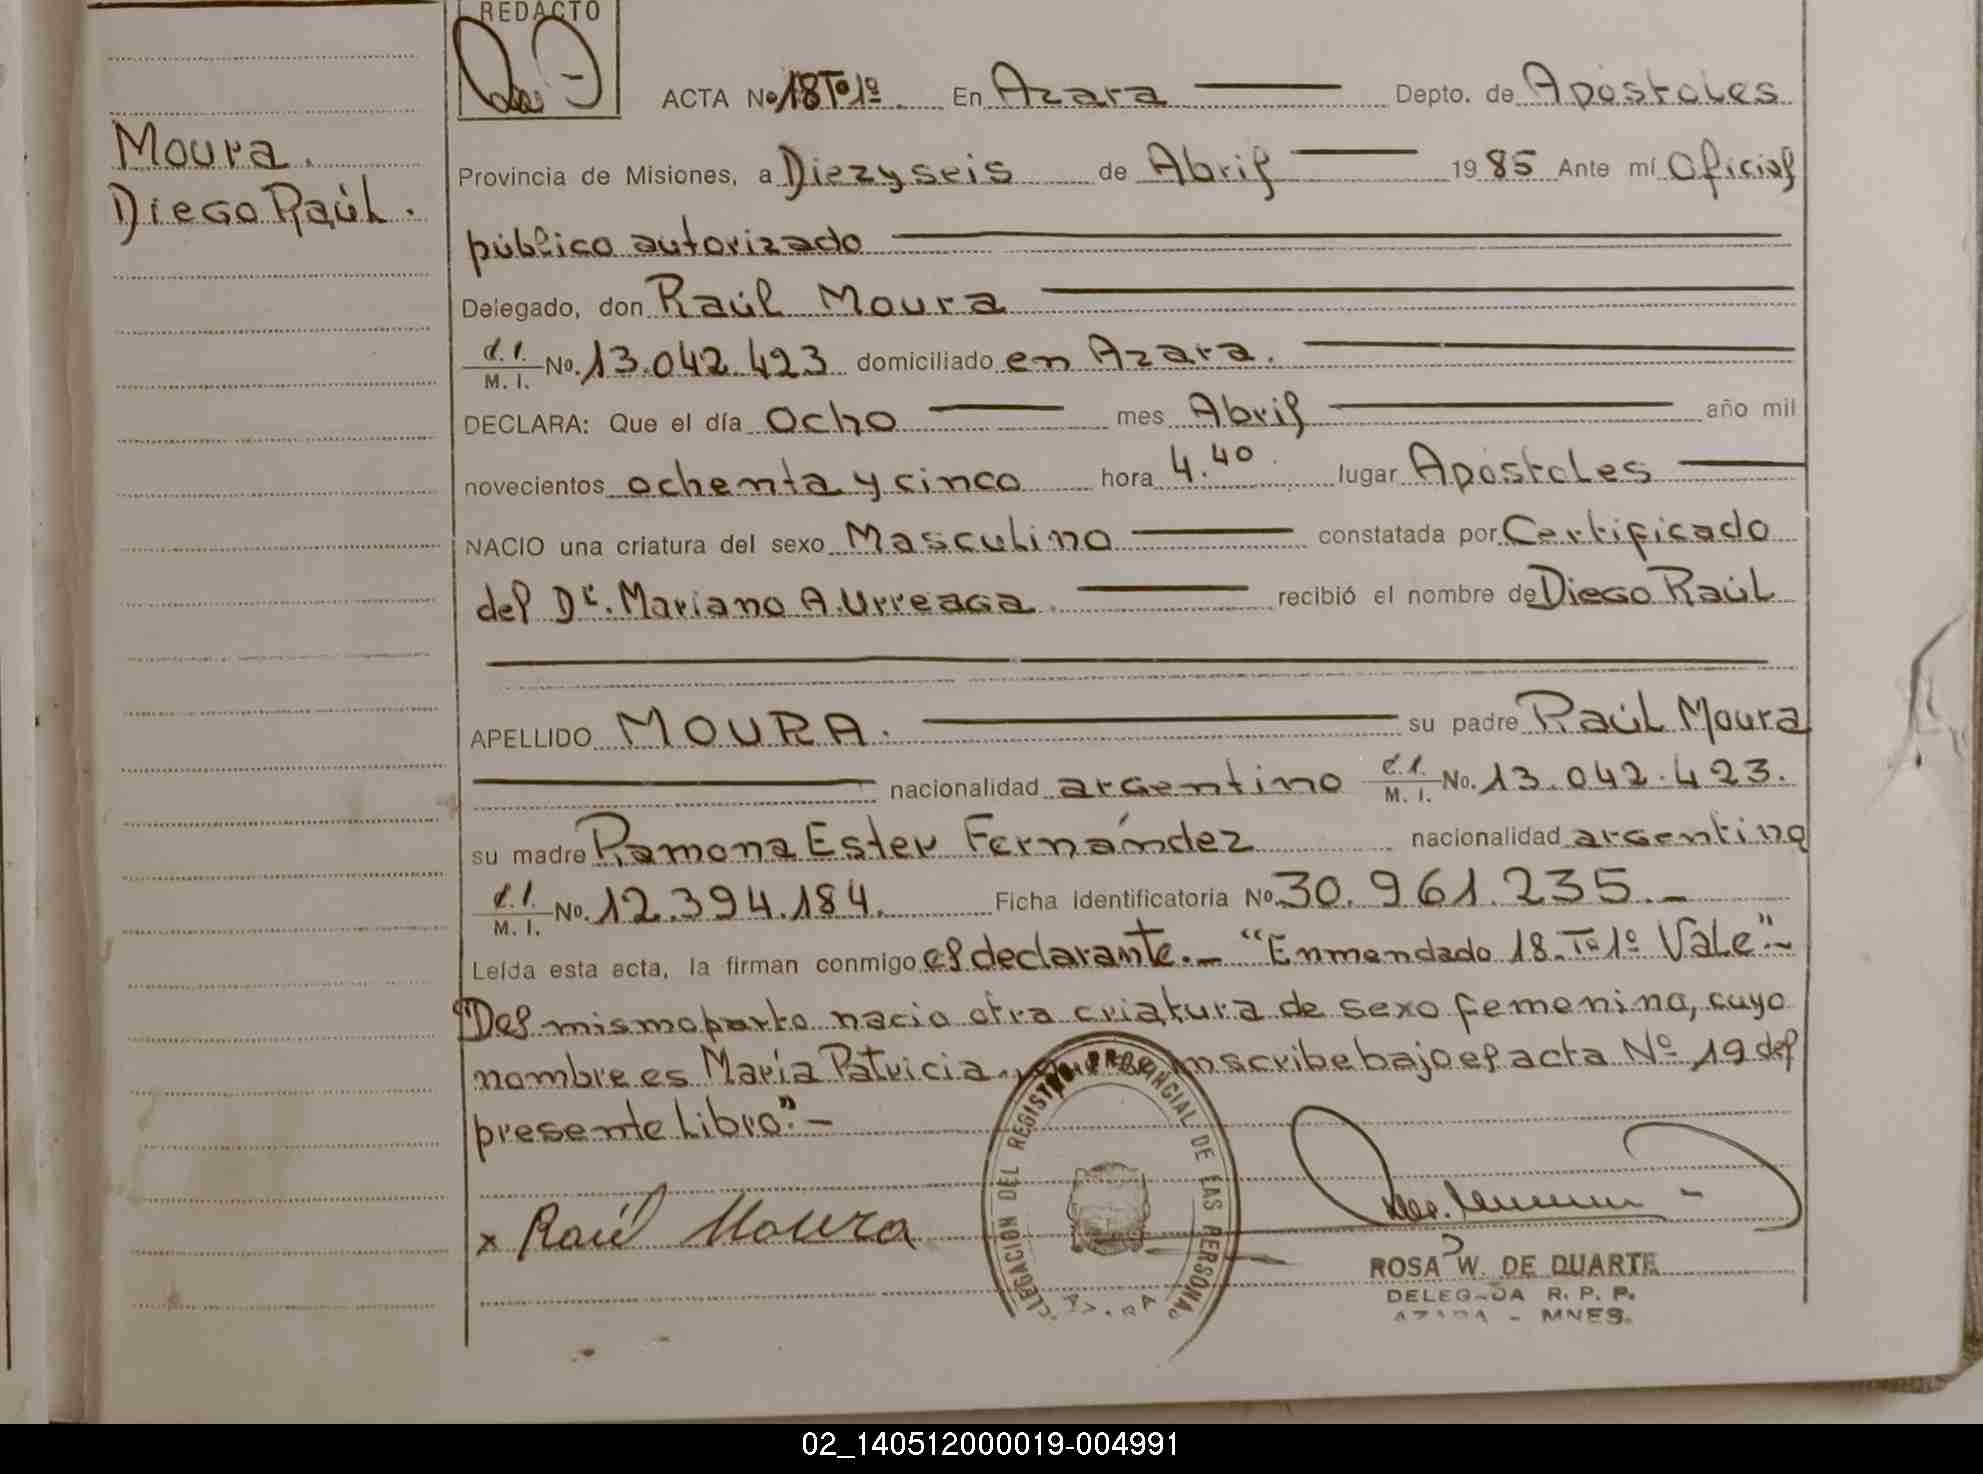 REDACTO
ACTA No 18 Tº 1º En Azara Depto. de Apóstoles
Moura.
Diego Raúl.
Provincia de Misiones, a Diezyseis de Abril 1985 Ante mí Oficial
público autorizado
Delegado, don Raúl Moura
d.i. M. I. No. 13.042.423 domiciliado en Azara.
DECLARA: Que el día Ocho mes Abril año mil
novecientos ochenta y cinco hora 4.40 lugar Apóstoles
NACIO una criatura del sexo Masculino constatada por Certificado
del Dr. Mariano A. Urreaga recibió el nombre de Diego Raúl
APELLIDO MOURA. su padre Raúl Moura
nacionalidad argentino M. I. No. 13.042.423.
su madre Ramona Ester Fernández nacionalidad argentina
M. I. No. 12.394.184. Ficha identificatoria No. 30.961.235.-
Leída esta acta, la firman conmigo el declarante.- "Enmendado 18.Tº1º Vale".-
"Del mismo parto nacio otra criatura de sexo femenino, cuyo
nombre es María Patricia, inscribe bajo el acta Nº 19 del
presente Libro".-
x Raúl Moura
DELEGACION DEL REGISTRO PROVINCIAL DE LAS PERSONAS
AZARA
ROSA W. DE DUARTE
DELEGADA R. P. P.
AZARA - MNES.
02_140512000019-004991